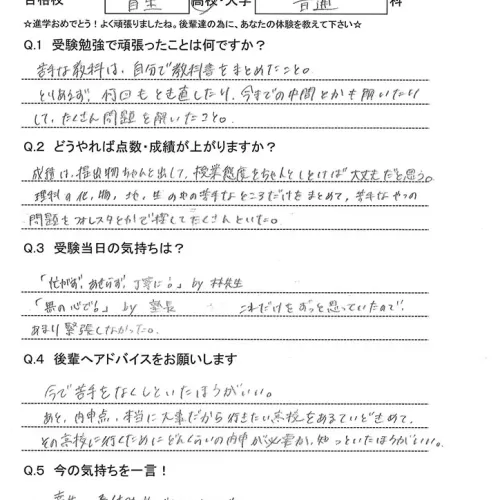 合格校 菅生 高校・大学 普通 科
☆進学おめでとう！よく頑張りましたね。後輩達の為に、あなたの体験を教えて下さい☆
Q.1 受験勉強で頑張ったことは何ですか？
苦手な教科は、自分で教科書をまとめたこと。
とりあえず、何回もとき直したり、今までの中間とかも解いたり
して、たくさん問題を解いたこと。
Q.2 どうやれば点数・成績が上がりますか？
成績は、提出物ちゃんと出して、授業態度をちゃんとしとけば大丈夫だと思う。
理科の化、物、地、生の中の苦手なところだけをまとめて、苦手なやつの
問題をフォレスタとかで探してたくさんといた。
Q.3 受験当日の気持ちは？
「忙がず、あせらず、丁寧に！」by 林先生
「無の心で！」by 塾長 これだけをずっと思っていたので、
あまり緊張しなかった。
Q.4 後輩へアドバイスをお願いします
今で苦手をなくしといたほうがいい。
あと、内申点、本当に大事だから行きたい高校をあるていどきめて、
その高校に行くためにどんくらいの内申が必要か、知っといたほうがいい。
Q.5 今の気持ちを一言！